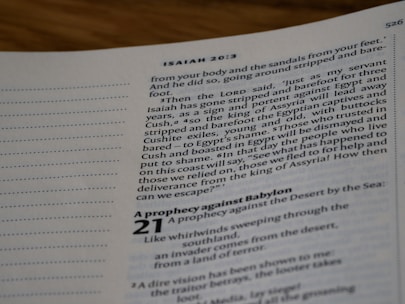 526
ISAIAH 20:3
from your body and the sandals from your feet.'
And he did so, going around stripped and bare-
foot.
3Then the LORD said, 'Just as my servant
Isaiah has gone stripped and barefoot for three
years, as a sign and portent against Egypt and
Cush, 4 so the king of Assyria will lead away
stripped and barefoot the Egyptian captives and
Cushite exiles, young and old, with buttocks
bared – to Egypt's shame. 5 Those who trusted in
Cush and boasted in Egypt will be dismayed and
put to shame. 6 In that day the people who live
on this coast will say, "See what has happened to
those we relied on, those we fled to for help and
deliverance from the king of Assyria! How then
can we escape?"'
A prophecy against Babylon
21 A prophecy against the Desert by the Sea:
Like whirlwinds sweeping through the
southland,
an invader comes from the desert,
from a land of terror.
2 A dire vision has been shown to me:
the traitor betrays, the looter takes
loot.
Media, lay siege!
all the groaning